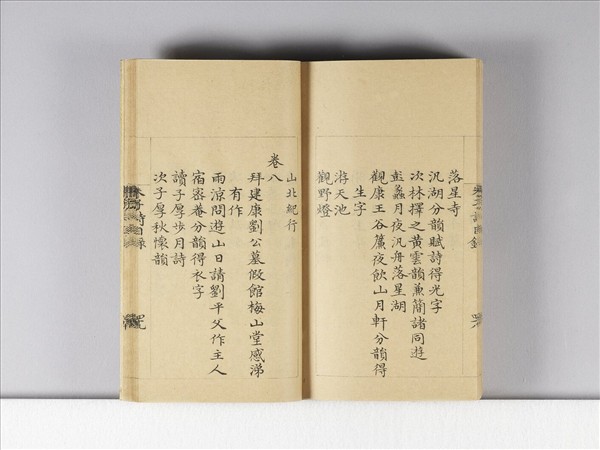 落星寺
汎湖分韻賦詩得光字
次林擇之黃雲韻兼簡諸同遊
彭蠡月夜汎舟落星湖
觀康王谷簾夜飲山月軒分韻得
生字
游天池
觀野燈
山北紀行
卷八
拜建康劉公墓假館梅山堂感涕
有作
雨涼問遊山日請劉平父作主人
宿密菴分韻得衣字
讀子厚步月詩
次子厚秋懷韻